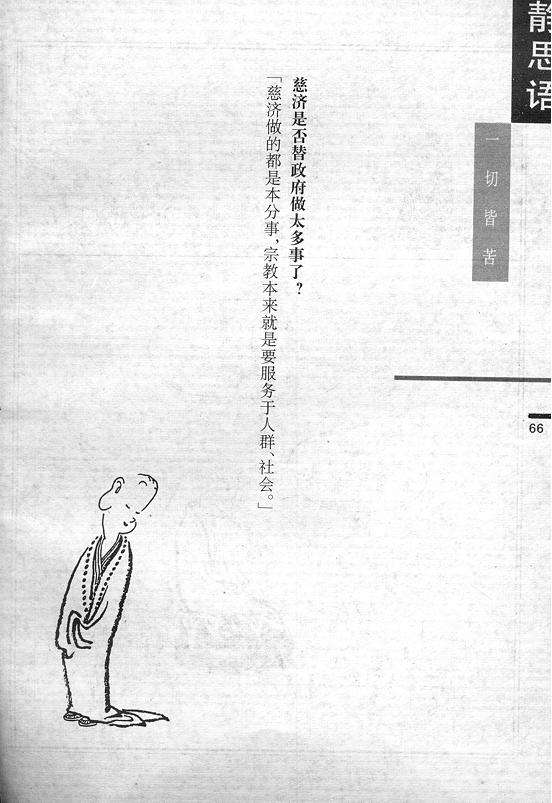 静思语
一切皆苦
66
慈济是否替政府做太多事了？
「慈济做的都是本分事，宗教本来就是要服务于人群、社会。」